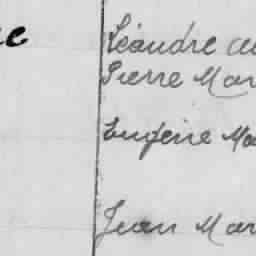 Léandre
Pierre Mar
Eugène Ma
Jean Mar